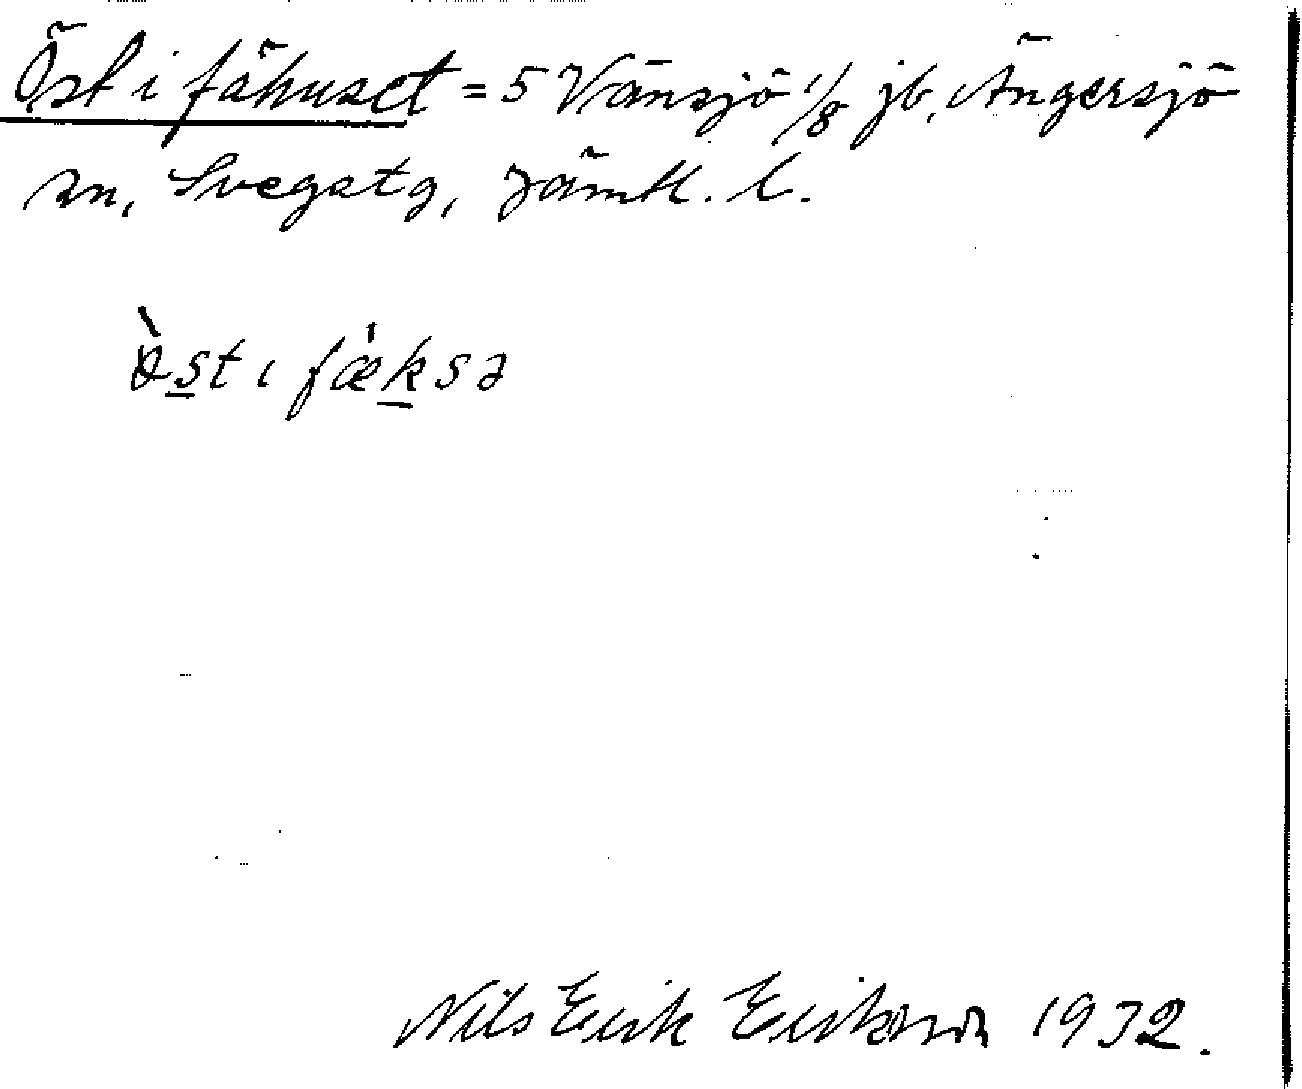 Öst i fähuset = 5 Vänsjö 1/8 jb, Ängersjö
sn, Svegstg, Jämtl. l.
ö̀st ı fǽksə
Nils Erik Eriksson 1932.